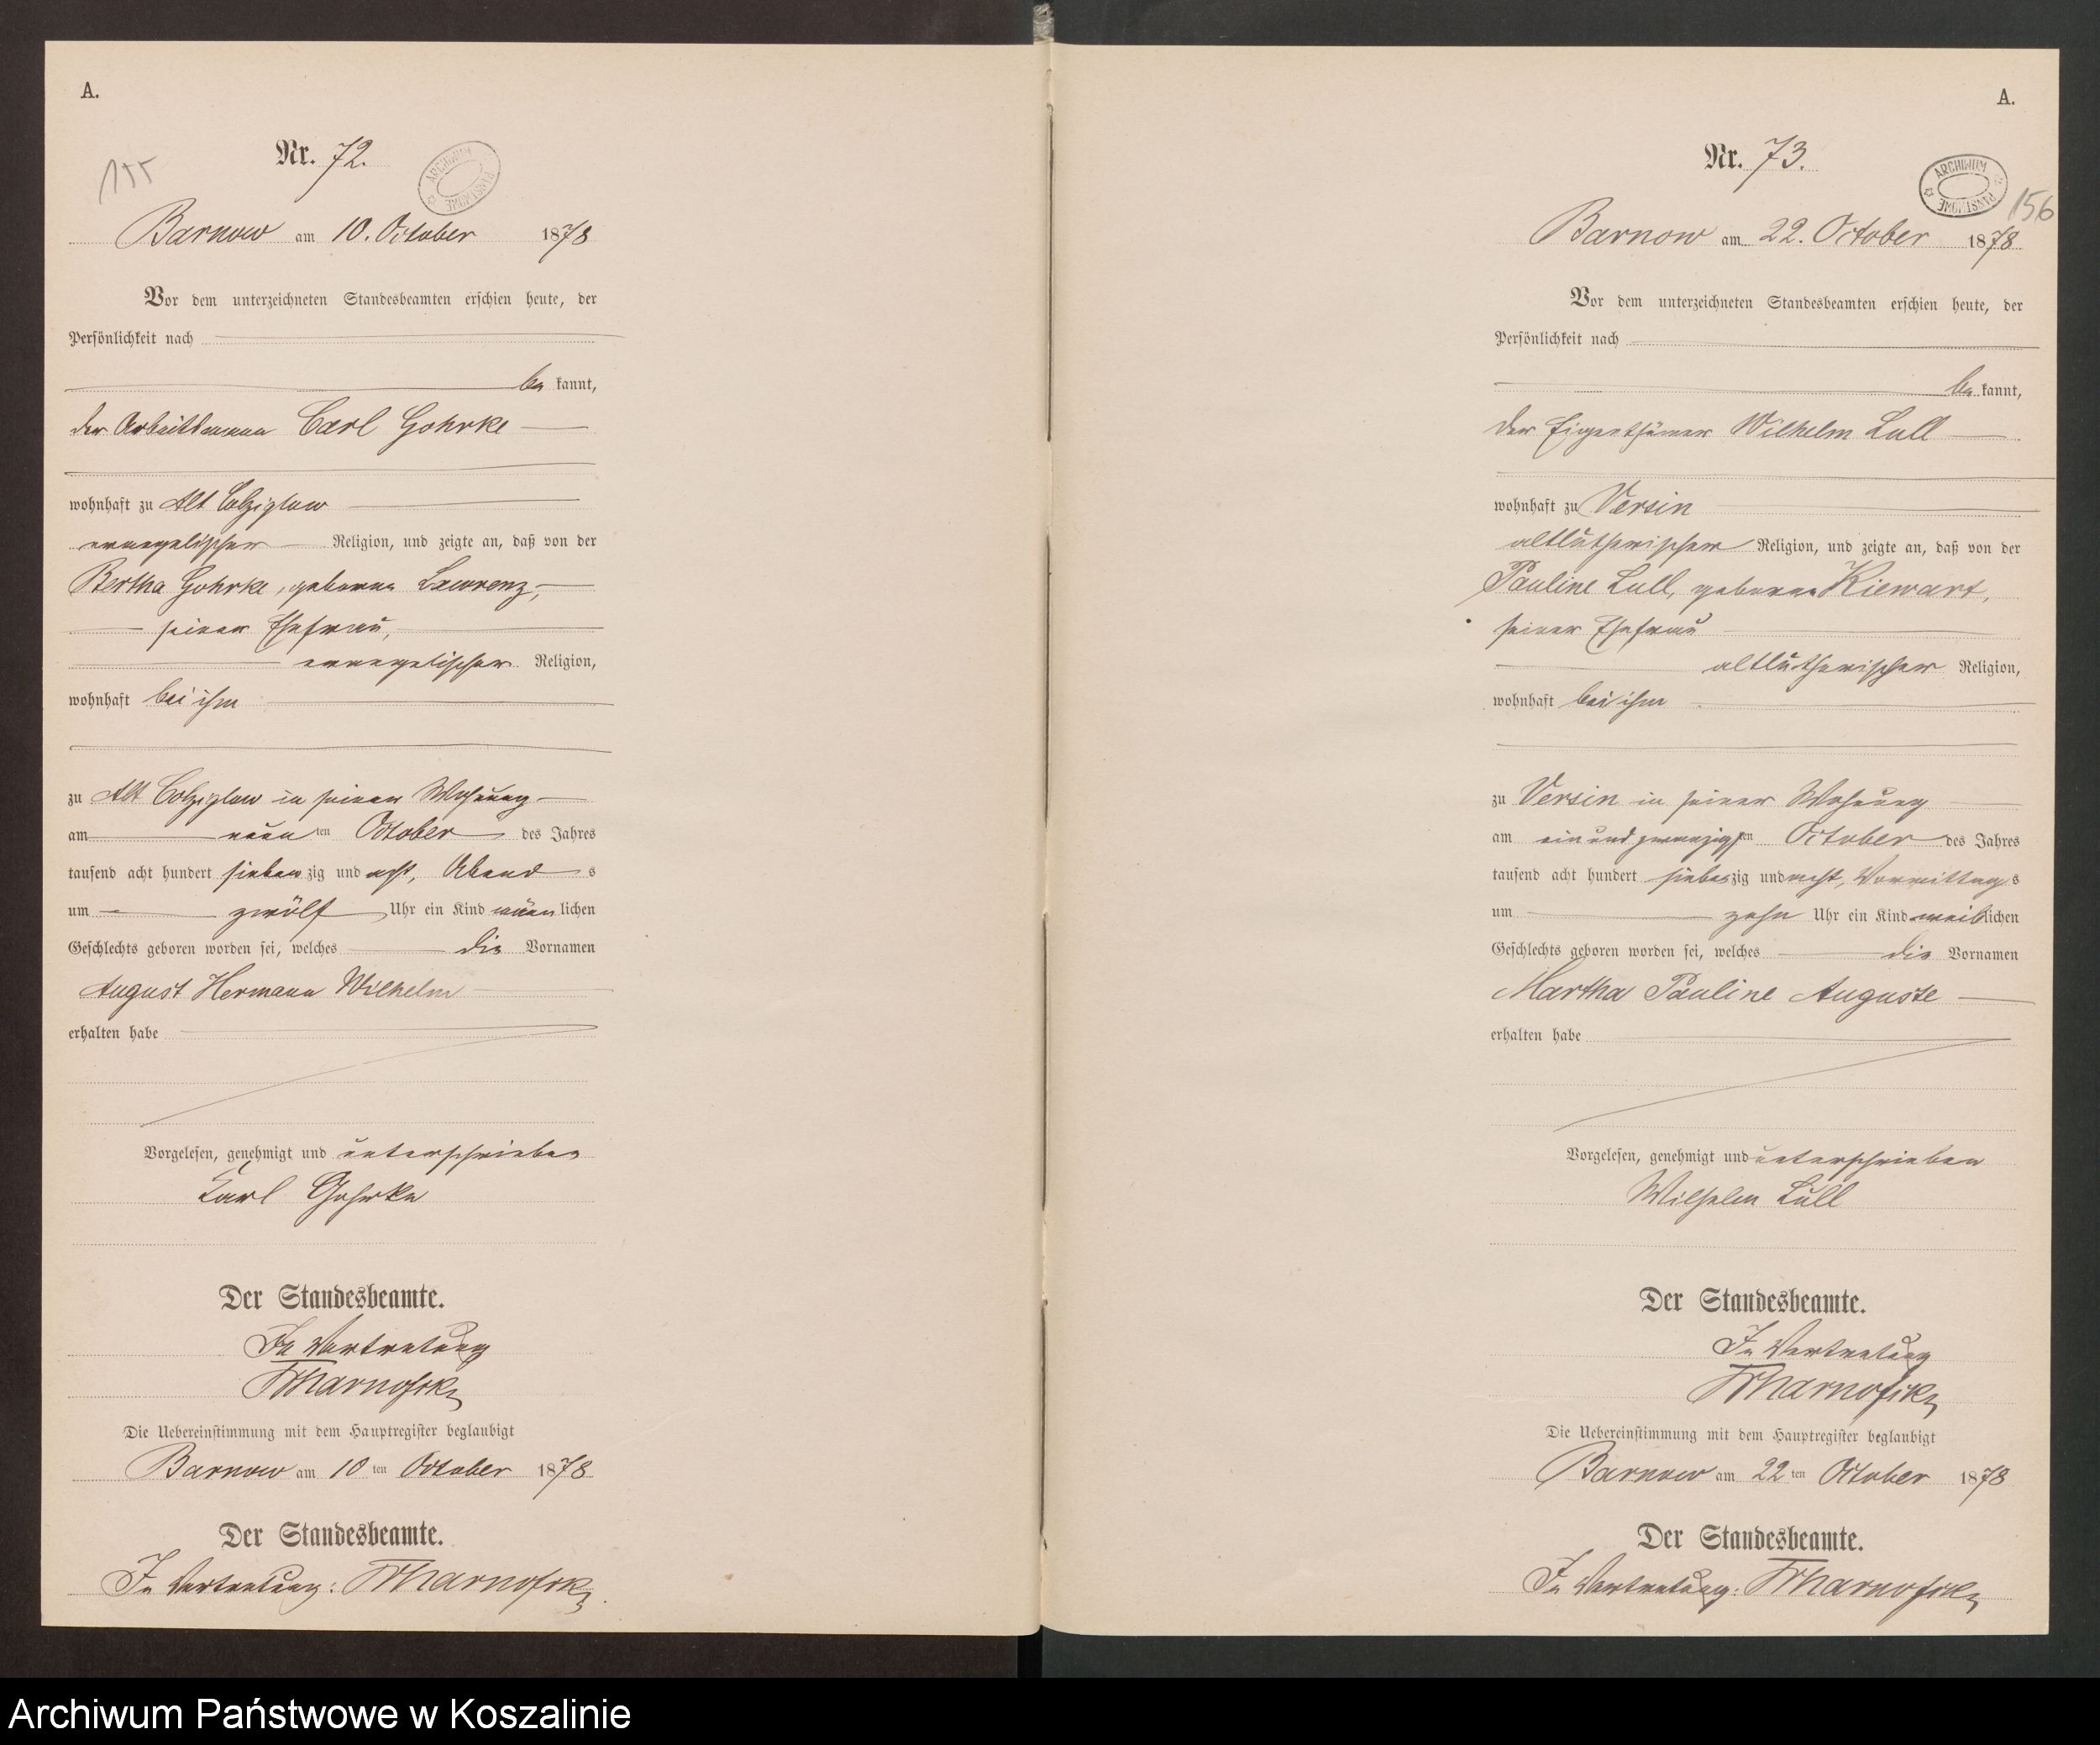 A.
Nr. 72.
155
ARCHIWUM PAŃSTWOWE
Barnow am 10. October 1878
Vor dem unterzeichneten Standesbeamten erschien heute, der
Persönlichkeit nach
be kannt,
der Arbeitsmann Carl Gohrke
wohnhaft zu Alt Colziglow
evangelischer Religion, und zeigte an, daß von der
Bertha Gohrke, geborne Lawrenz,
seiner Ehefrau,
evangelischer Religion,
wohnhaft bei ihm
zu Alt Colziglow in seiner Wohnung
am neun ten October des Jahres
tausend acht hundert sieben zig und acht, Abend s
um zwölf Uhr ein Kind männ lichen
Geschlechts geboren worden sei, welches die Vornamen
August Hermann Wilhelm
erhalten habe
Vorgelesen, genehmigt und unterschrieben
Karl Gohrke
Der Standesbeamte.
In Vertretung
Die Uebereinstimmung mit dem Hauptregister beglaubigt
Barnow am 10 ten October 1878
Der Standesbeamte.
In Vertretung:
A.
Nr. 73.
ARCHIWUM PAŃSTWOWE
156
Barnow am 22. October 1878
Vor dem unterzeichneten Standesbeamten erschien heute, der
Persönlichkeit nach
be kannt,
der Eigenthümer Wilhelm Lull
wohnhaft zu Versin
altlutherischer Religion, und zeigte an, daß von der
Pauline Lull, geborne Kiewart,
seiner Ehefrau
altlutherischer Religion,
wohnhaft bei ihm
zu Versin in seiner Wohnung
am ein und zwanzigsten October des Jahres
tausend acht hundert siebenzig und acht, Vormittag s
um zehn Uhr ein Kind weiblichen
Geschlechts geboren worden sei, welches die Vornamen
Martha Pauline Auguste
erhalten habe
Vorgelesen, genehmigt und unterschrieben
Wilhelm Lull
Der Standesbeamte.
In Vertretung
Die Uebereinstimmung mit dem Hauptregister beglaubigt
Barnow am 22 ten October 1878
Der Standesbeamte.
In Vertretung:
Archiwum Państwowe w Koszalinie